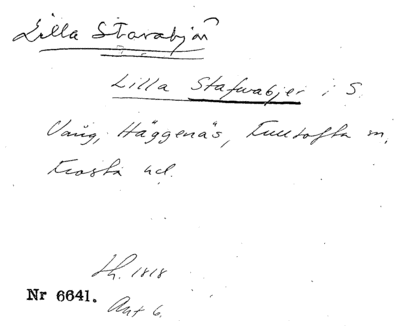 Lilla Stavabjär
Lilla Stafwabjer i S.
Vång, Häggenäs, Fulltofta m.
Frosta hd.
Lh. 1818
Nr 6641. Ant 6.